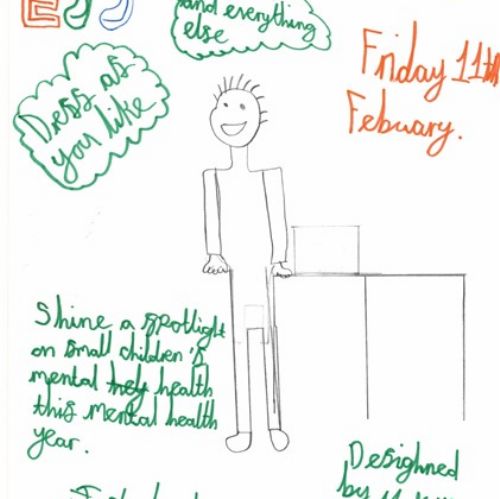 and everything
else
Friday 11th
Febuary.
Dess as
you like
Shine a spotlight
on small children's
mental hey health
this mental health
year.
Desighned
by